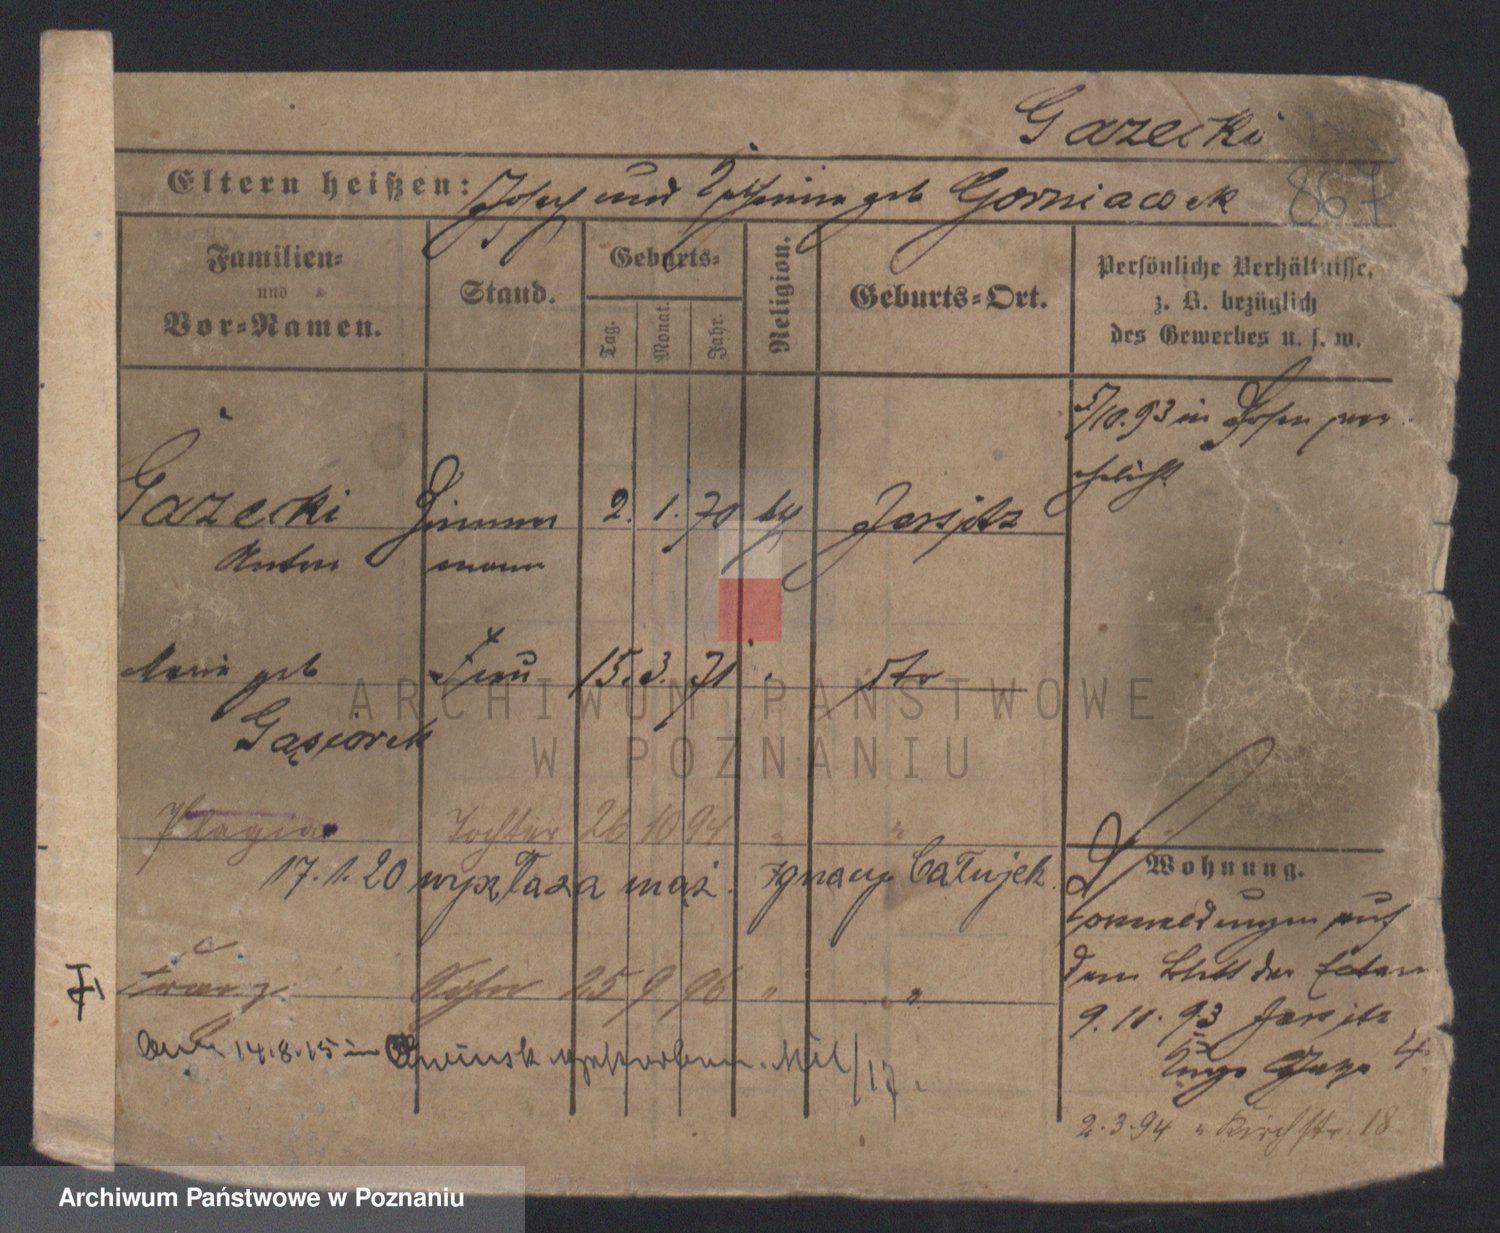 Gazecki
867
Eltern heißen: Josef und geb Gorniaczek
Familien- und Vor-Namen.
Stand.
Geburts-
Tag.
Monat.
Jahr.
Religion.
Geburts-Ort.
Persönliche Verhältnisse, z. B. bezüglich des Gewerbes u. s. w.
5/10.93 in Posen ver
ehelicht
Gazecki Zimmer 2. 1. 70 kth Jersitz
Anton mann
Maria geb Frau 15. 3. 71 " dto
Gąsiorek
Pelagia Tochter 26 10 94 " "
17. 1. 20 wyszła za mąż. Ignacy Całujek.
Franz Sohn 25 9 96 " "
14.8.15 in gestorben. Mil/17.
F
Wohnung.
Vormeldungen auf
dem Blatt der Eltern
9. 10. 93 Jersitz
4.
2.3.94 " Kirchstr. 18.
ARCHIWUM PAŃSTWOWE
W POZNANIU
Archiwum Państwowe w Poznaniu